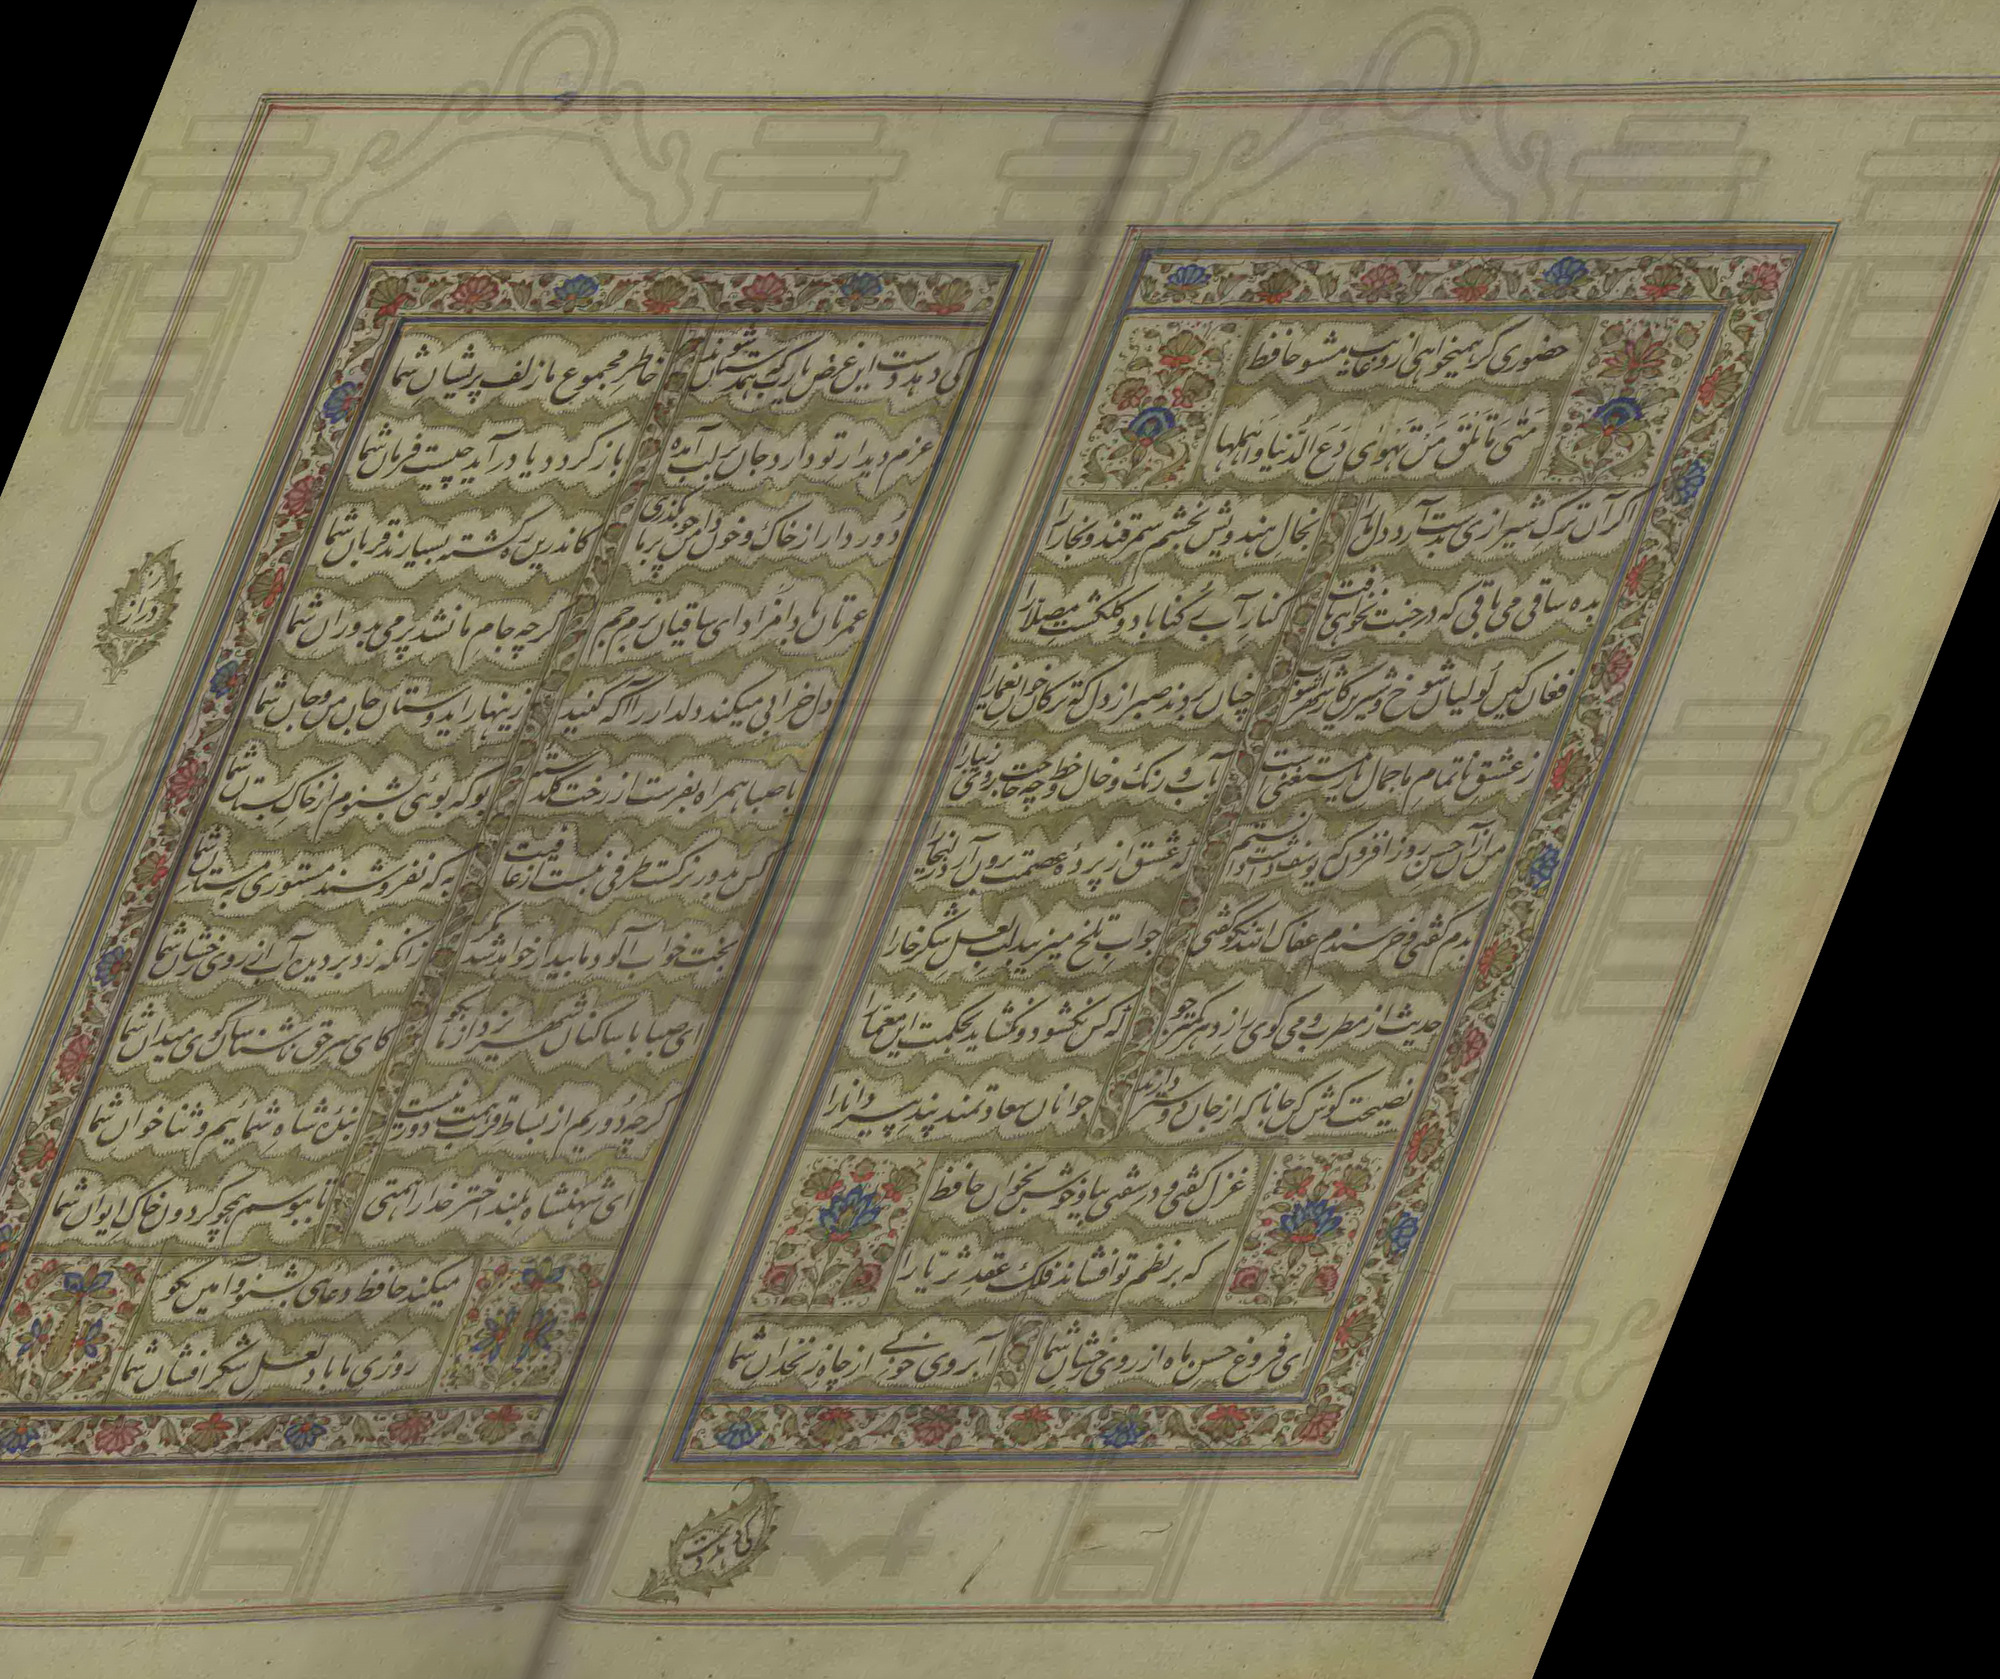 حضوری گر همیخواهی ازو غایب مشو حافظ
مَتی مَا تَلقَ مَن تَهوی دَعِ الدُّنیا و اَهملها
اگر آن ترک شیرازی بدست آرد دل ما را بخالِ هندویش بخشم سمرقند و بخارا را
بده ساقی می باقی که در جنت نخواهی یافت کنارِ آب رُکناباد و گلگشتِ مصلا را
فغان کین لولیان شوخ و شیرین کار شهرآشوب چنان بردند صبر از دل که ترکان خوان یغما را
ز عشق ناتمامِ ما جمال یار مستغنی است بآب و رنگ و خال و خط چه حاجت روی زیبا را
من از آن حسنِ روز افزون که یوسف داشت دانستم که عشق از پردهٔ عصمت برون آرد زلیخا را
بدم گفتی و خرسندم عفاک الله نکو گفتی جوابِ تلخ میزیبد لبِ لعلِ شکرخارا
حدیث از مطرب و می گوی و رازِ دهر کمتر جو که کس نگشود و نگشاید بحکمت این معما را
نصیحت گوش کن جانا که از جان دوستر دارند جوانان سعادتمند پندِ پیر دانا را
غزل گفتی و در سفتی بیا و خوش بخوان حافظ
که بر نظم تو افشاند فلک عقدِ ثریّا را
ای فروغ حسنِ ماه از روی رخشانِ شما آبروی خوبی از چاهِ زنخدانِ شما
کی دهد دست
کی دهد دست این غرض یارب که همدستان شوند خاطرِ مجموع ما زلف پریشان شما
عزم دیدار تو دارد جان بر لب آمده باز گردد یا در آید چیست فرمان شما
دور دار از خاک و خون دامن چو بر ما بگذری کاندرین ره کشته بسیارند قربان شما
عمرتان بادا مُراد ای ساقیان بزم جم گرچه جام ما نشد پر می بدوران شما
دراز
دل خرابی میکند دلدار را آگه کنید زینهار ایدوستان جان من و جان شما
با صبا همراه بفرست از رخت گلدسته بو که بوئی بشنوم از خاک بستان شما
کس بدور نرگست طرفی نبست از عافیت به که نفروشند مستوری بمستان شما
بخت خواب آلود ما بیدار خواهد شد مگر زانکه زد بر دیده آب از روی رخشان شما
ای صبا با ساکنان شهر یزد از ما بگو کای سر حق ناشناسان گوی میدان شما
گرچه دوریم از بساط قرب همت دور نیست بندهٔ شاه شمائیم و ثنا خوان شما
ای شهنشاه بلند اختر خدا را همتی تا ببوسم همچو گردون خاک ایوان شما
میکند حافظ دعای بشنو و آمین بگو
روزی ما باد لعل شکر افشان شما